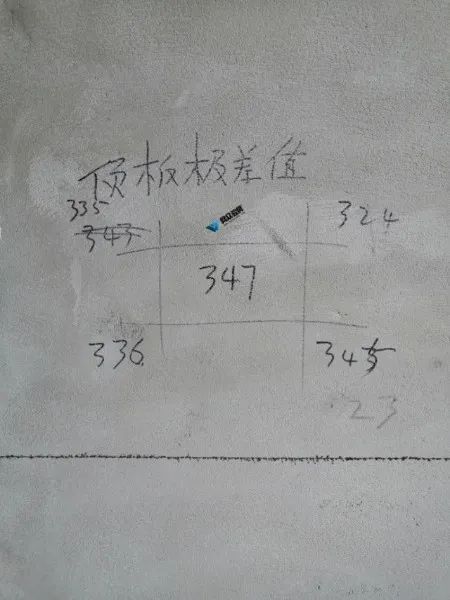 顶板极差值
335
343 324
347
336 345
23